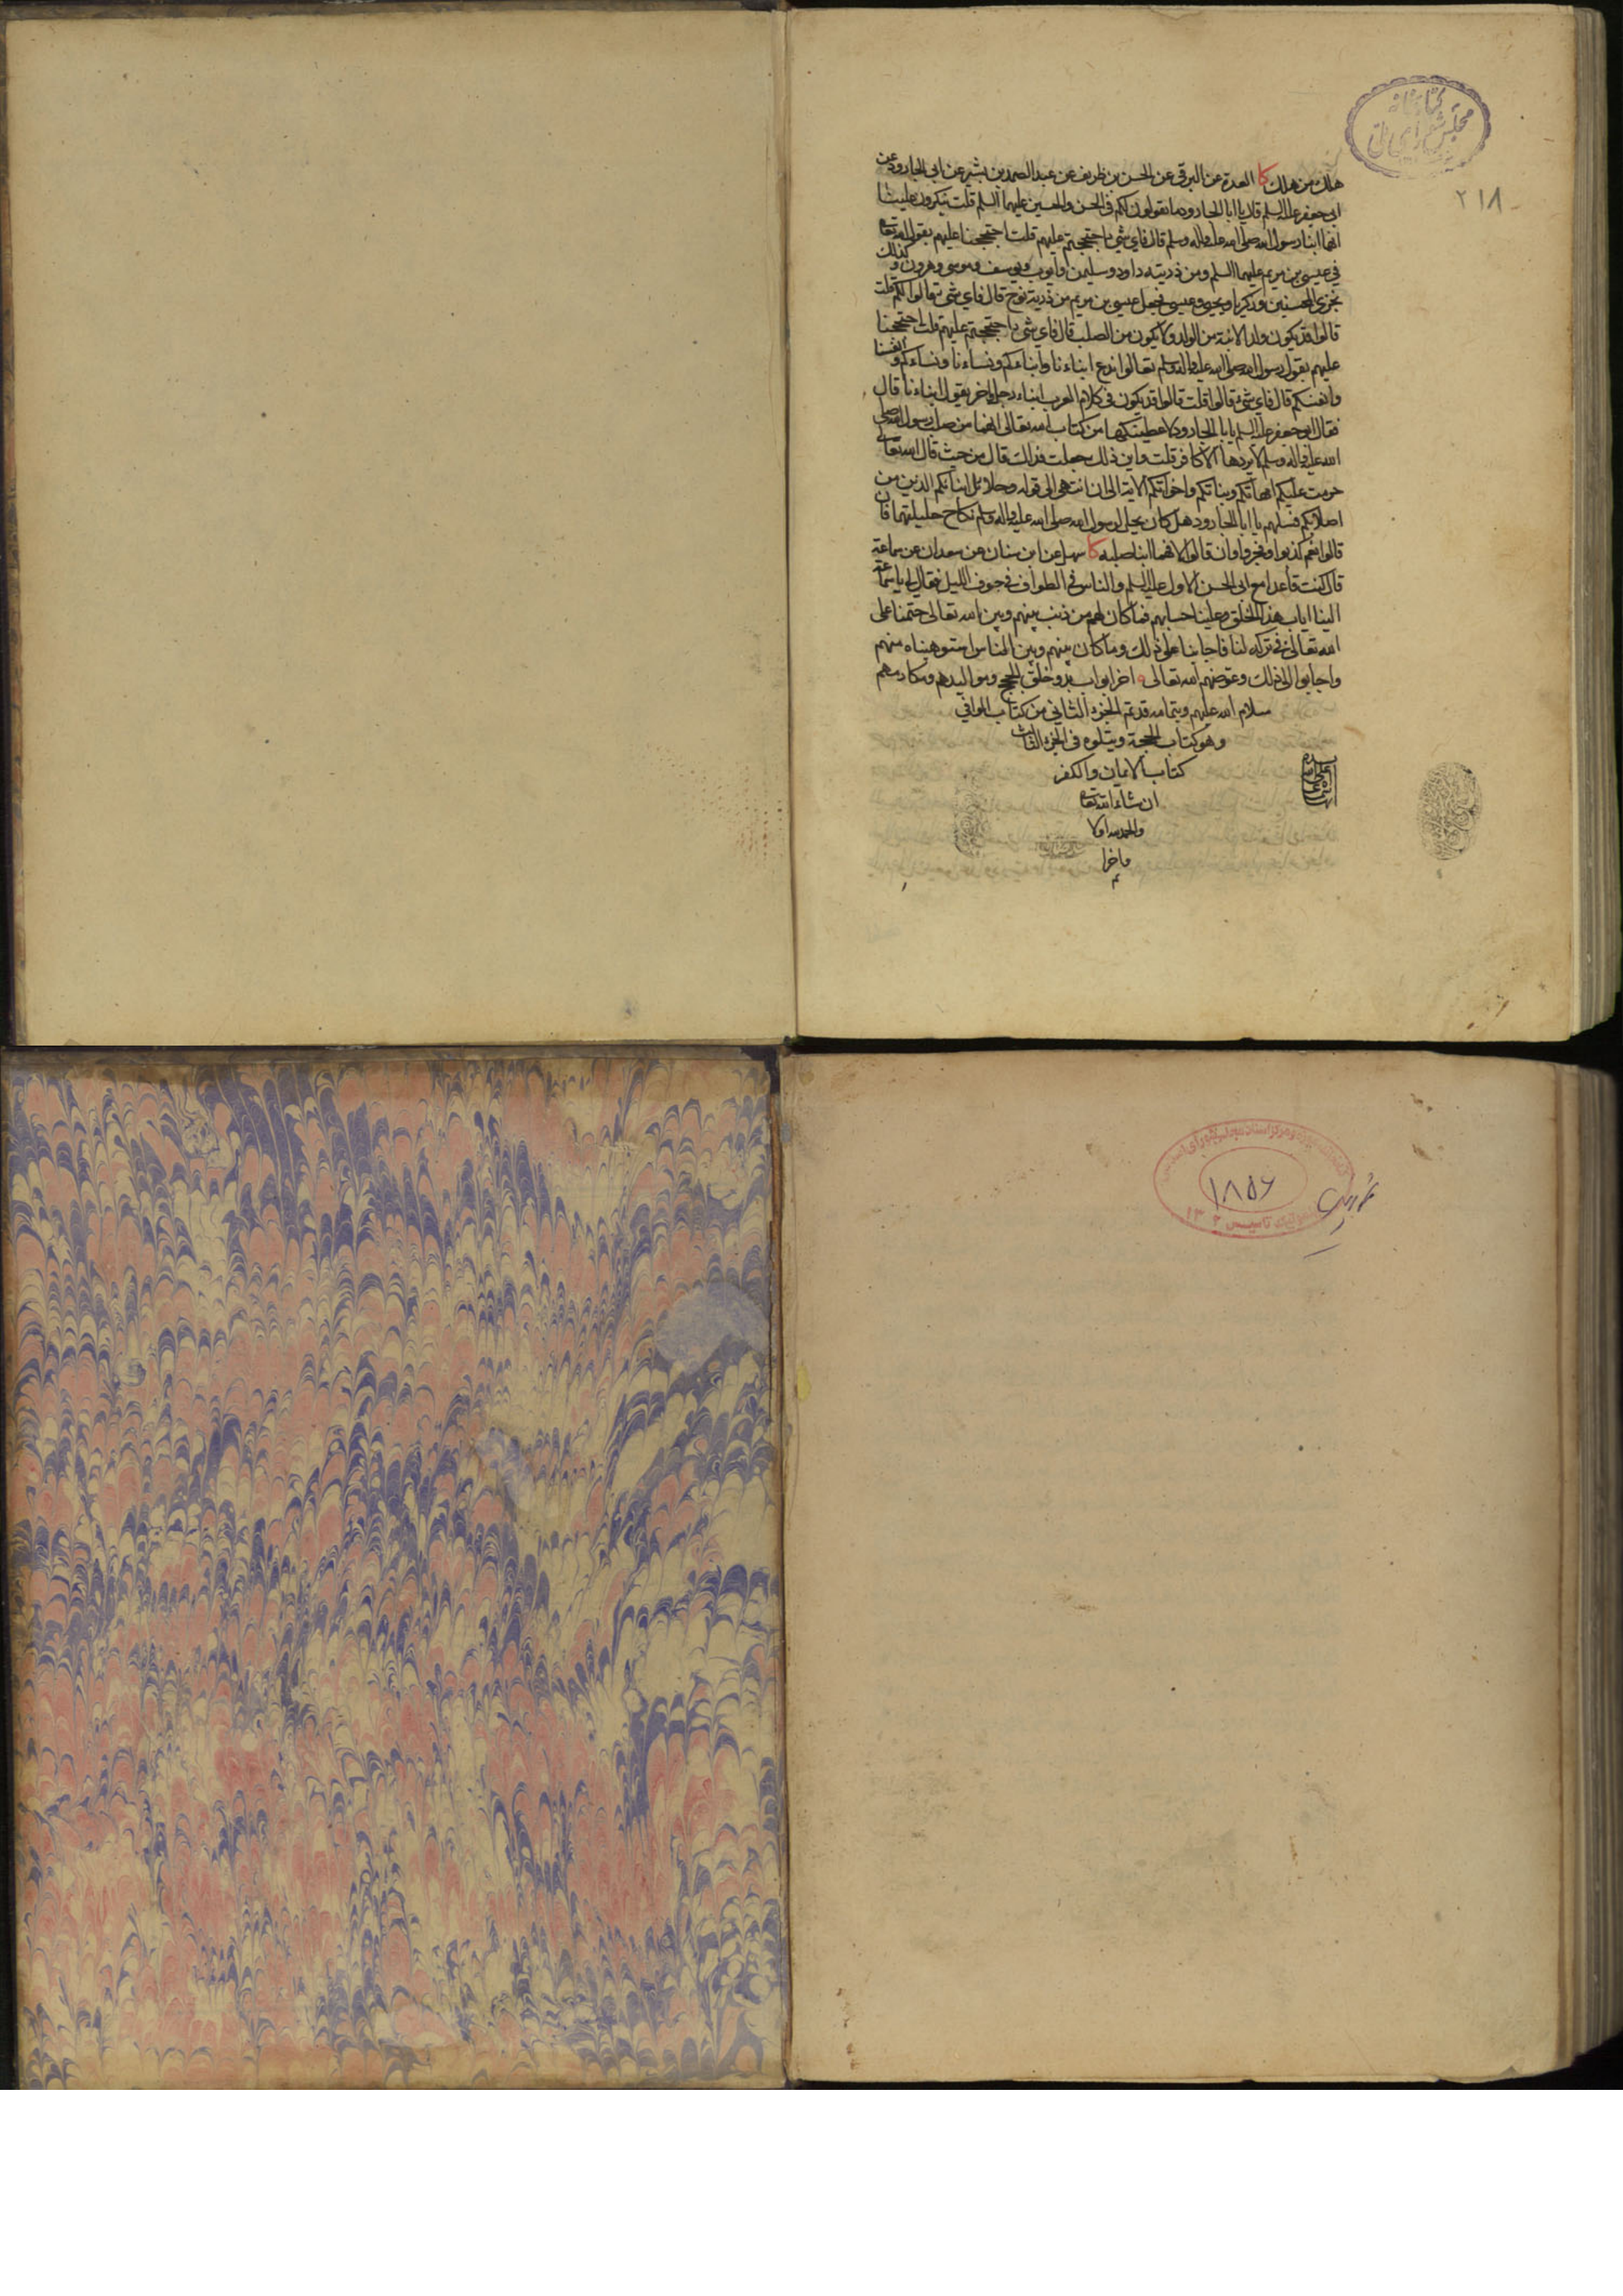 كتابخانه
مجلس شورای ملی
٢١٨
هلك من هلك كا العدة عن البرقي عن الحسن بن ظريف عن عبد الصمد بن بشير عن ابي الجارود عن
ابي جعفر عليه السلم قال يا ابا الجارود ما تقولون لكم في الحسن والحسين عليهما السلم قلت ينكرون علينا
انهما ابنا رسول الله صلى الله عليه واله وسلم قال فاي شئ احتججتم عليهم قلت احتججنا عليهم بقول الله تعا
في عيسى بن مريم عليهما السلم ومن ذريته داود وسليمن وايوب ويوسف وموسى وهرون و كذلك
نجزي المحسنين وزكريا ويحيى وعيسى فجعل عيسى بن مريم من ذرية نوح قال فاي شئ قالوا لكم قلت
قالوا قد يكون ولد الابنة من الولد ولا يكون من الصلب قال فاي شئ احتججتم عليهم قلت احتججنا
عليهم بقول رسول الله صلى الله عليه واله وسلم تعالوا ندع ابناءنا وابناءكم ونساءنا ونساءكم و انفسنا
وانفسكم قال فاي شئ قالوا قلت قالوا قد يكون في كلام العرب ابناء رجل واخر يقول ابناءنا قال
فقال ابو جعفر عليه السلم يا با الجارود لاعطينكها من كتاب الله تعالى انهما من صلب رسول الله صلى
الله عليه واله وسلم لا يردها الا كافر قلت واين ذلك جعلت فداك قال من حيث قال الله تعا
حرمت عليكم امهاتكم وبناتكم واخواتكم الاية الى ان انتهى الى قوله وحلائل ابنائكم الذين من
اصلابكم فسلهم يا ابا الجارود هل كان يحل لرسول الله صلى الله عليه واله وسلم نكاح حليلتهما فان
قالوا نعم كذبوا وفجروا وان قالوا لا فهما ابنا صلبه كا سهل عن ابن سنان عن سعدان عن سماعة
قال كنت قاعدا مع ابي الحسن الاول عليه السلم والناس في الطواف في جوف الليل فقال لي يا سماعة
الينا اياب هذا الخلق وعلينا حسابهم فما كان لهم من ذنب بينهم وبين الله تعالى حتمنا على
الله تعالى في تركه لنا فاجابنا على ذلك وما كان بينهم وبين الناس استوهبناه منهم
واجابوا الى ذلك وعوضهم الله تعالى اخر ابواب بدو خلق الحجج ومواليدهم ومكارمهم
سلام الله عليهم وبتمامه قد تم الجزء الثاني من كتاب الوافي
وهو كتاب الحجة ويتلوه في الجزء الثالث
كتاب الايمان والكفر
ان شاء الله تعا
والحمد لله اولا
واخرا
تم
١٨٥٦